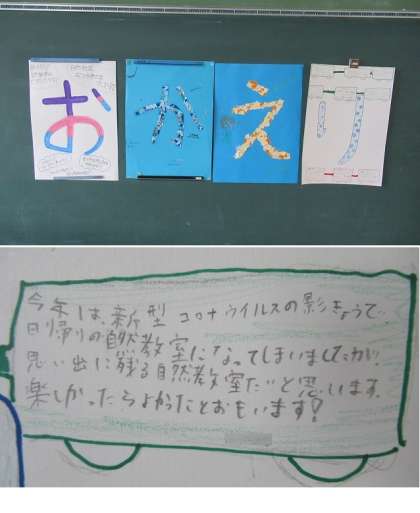 おかえり
今年は、新型コロナウイルスの影きょうで、
日帰りの自然教室になってしまいましたが、
思い出に残る自然教室だと思います。
楽しかったらよかったとおもいます!